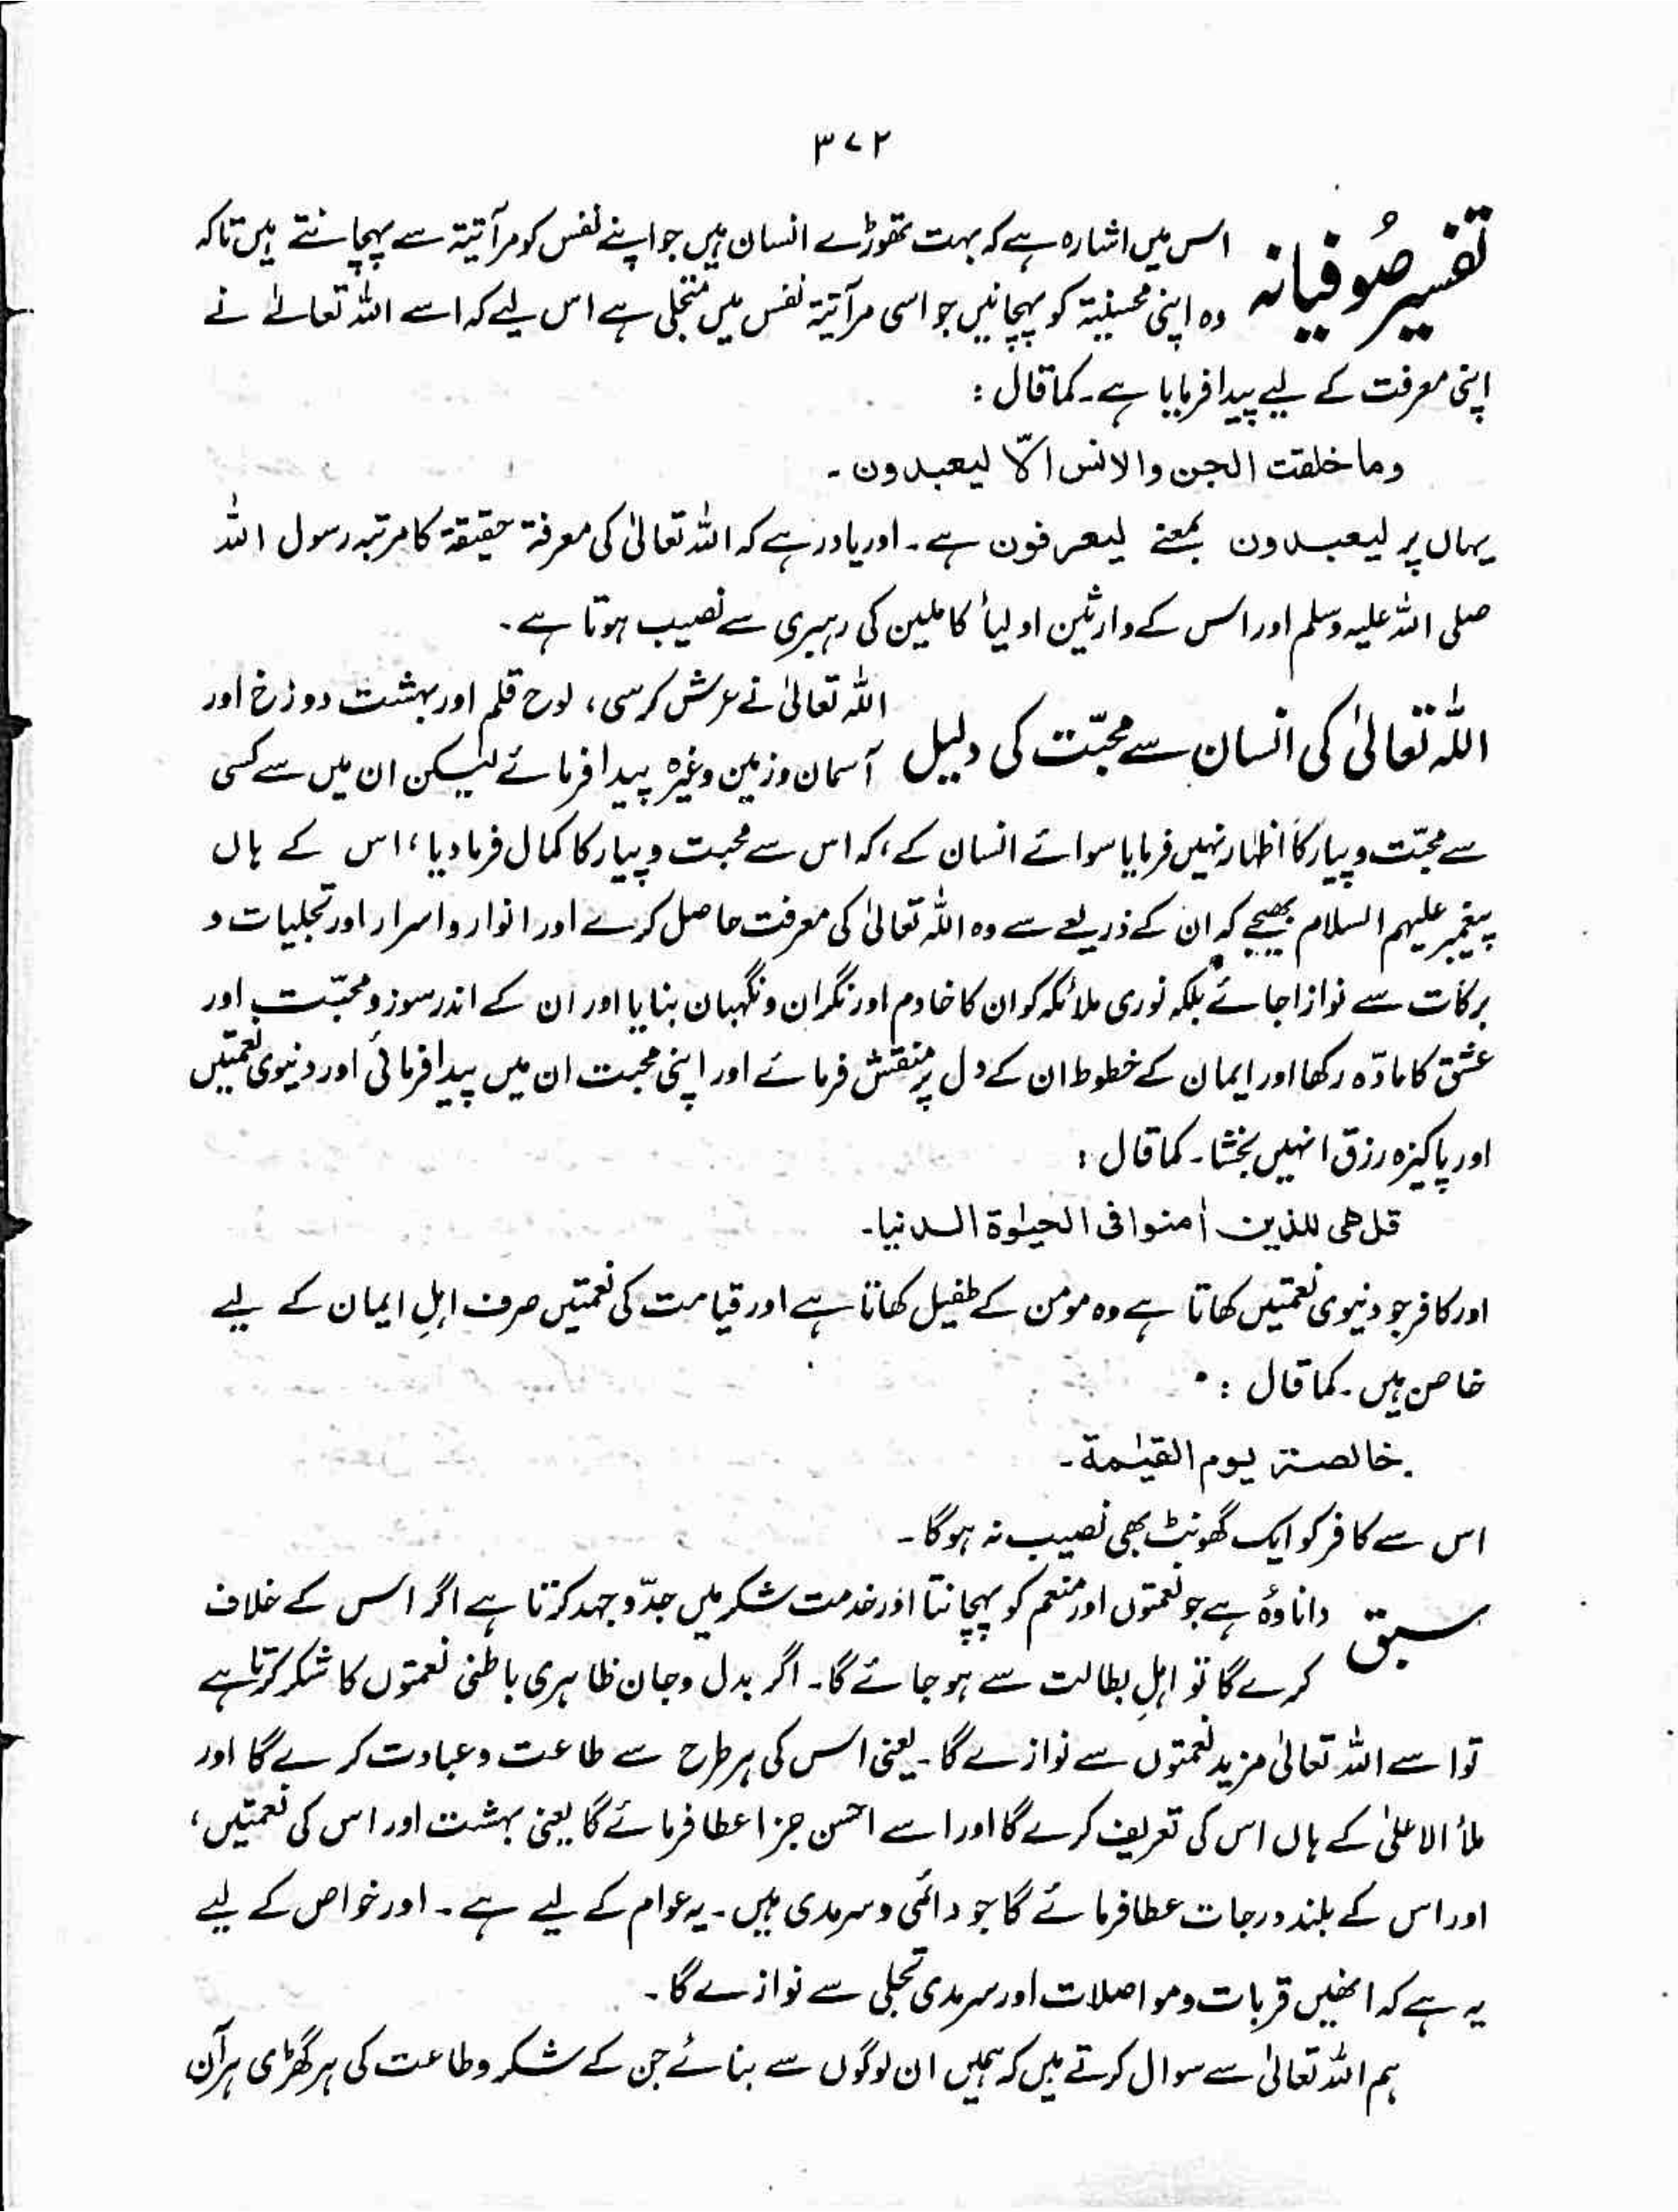 ۳۷۲
تفسیر صُوفیانہ اس میں اشارہ ہے کہ بہت تھوڑے انسان ہیں جو اپنے نفس کو مرآتیۃ سے پہچانتے ہیں تاکہ
وہ اپنی محسنیۃ کو پہچانیں جو اسی مرآتیۃ نفس میں متجلی ہے اس لیے کہ اسے اللہ تعالےٰ نے
اپنی معرفت کے لیے پیدا فرمایا ہے۔ کما قال :
وما خلقت الجن والانس الّا لیعبدون ۔
یہاں پر لیعبدون بمعنے لیعرفون ہے۔ اور یاد رہے کہ اللہ تعالیٰ کی معرفۃ حقیقۃ کا مرتبہ رسول اللہ
صلی اللہ علیہ وسلم اور اس کے وارثین اولیأ کاملین کی رہبری سے نصیب ہوتا ہے۔
اللہ تعالیٰ کی انسان سے محبّت کی دلیل اللہ تعالیٰ نے عرش کرسی، لوح قلم اور بہشت دوزخ اور
آسمان و زمین وغیرہ پیدا فرمائے لیکن ان میں سے کسی
سے محبّت و پیار کا اظہار نہیں فرمایا سوائے انسان کے، کہ اس سے محبت و پیار کا کمال فرما دیا، اس کے ہاں
پیغمبر علیہم السلام بھیجے کہ ان کے ذریعے سے وہ اللہ تعالیٰ کی معرفت حاصل کرے اور انوار و اسرار اور تجلیات و
برکات سے نوازا جائے بلکہ نوری ملائکہ کو ان کا خادم اور نگران و نگہبان بنایا اور ان کے اندر سوز و محبّت اور
عشق کا مادّہ رکھا اور ایمان کے خطوط ان کے دل پر منقش فرمائے اور اپنی محبت ان میں پیدا فرمائی اور دنیوی نعمتیں
اور پاکیزہ رزق انہیں بخشا۔ کما قال :
قل ھی للذین اٰمنوا فی الحیٰوۃ الدنیا۔
اور کافر جو دنیوی نعمتیں کھاتا ہے وہ مومن کے طفیل کھاتا ہے اور قیامت کی نعمتیں صرف اہلِ ایمان کے لیے
خاص ہیں۔ کما قال :
خالصۃ یوم القیٰمۃ ۔
اس سے کافر کو ایک گھونٹ بھی نصیب نہ ہوگا۔
سبق دانا وُہ ہے جو نعمتوں اور منعم کو پہچانتا اور خدمت شکر میں جدّوجہد کرتا ہے اگر اس کے خلاف
کرے گا تو اہلِ بطالت سے ہو جائے گا۔ اگر بدل و جان ظاہری باطنی نعمتوں کا شکر کرتا ہے
تو اسے اللہ تعالیٰ مزید نعمتوں سے نوازے گا۔ یعنی اس کی ہر طرح سے طاعت و عبادت کرے گا اور
ملأ الاعلیٰ کے ہاں اس کی تعریف کرے گا اور اسے احسن جزا عطا فرمائے گا یعنی بہشت اور اس کی نعمتیں،
اور اس کے بلند درجات عطا فرمائے گا جو دائمی و سرمدی ہیں۔ یہ عوام کے لیے ہے۔ اور خواص کے لیے
یہ ہے کہ انھیں قربات و مواصلات اور سرمدی تجلی سے نوازے گا۔
ہم اللہ تعالیٰ سے سوال کرتے ہیں کہ ہمیں ان لوگوں سے بنائے جن کے شکر و طاعت کی ہر گھڑی ہر آن